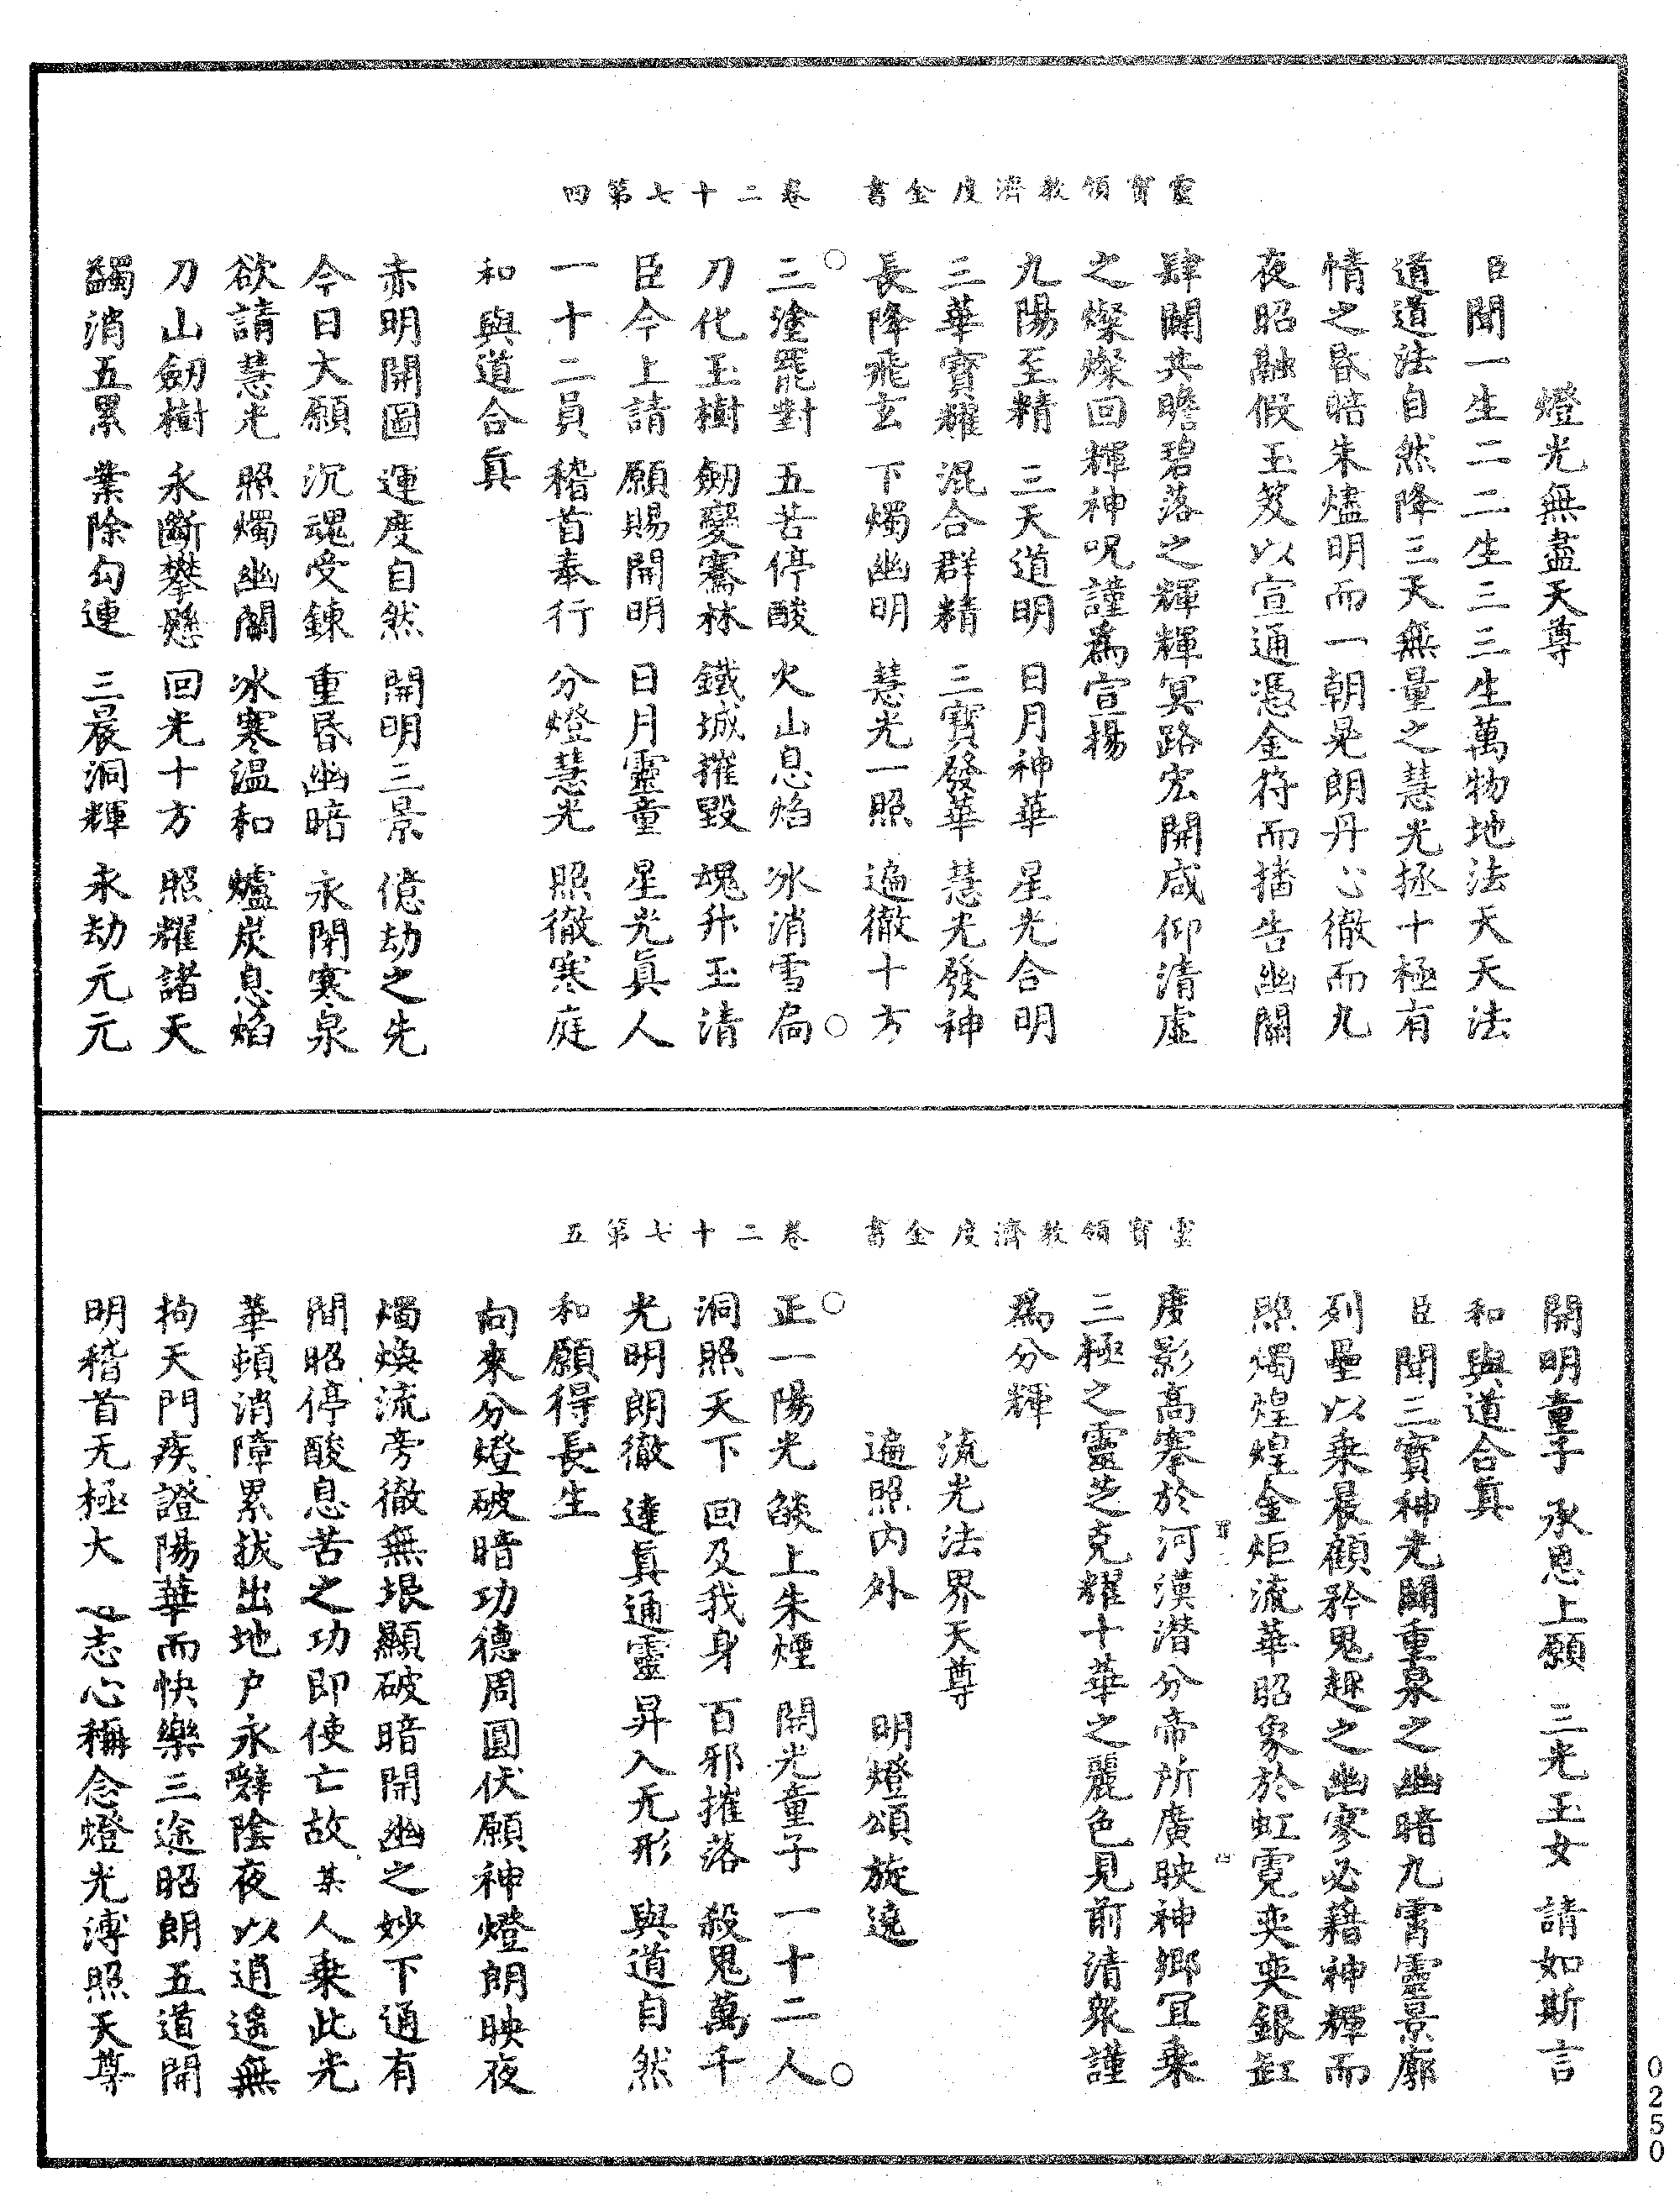 靈寶領教濟度金書　卷二十七第四
燈光無盡天尊
臣聞一生二二生三三生萬物地法天天法
道道法自然降三天無量之慧光拯十極有
情之昏暗朱燼明而一朝晃朗丹心徹而九
夜昭融假玉笈以宣通憑金符而播告幽關
肆闢共瞻碧落之輝輝冥路宏開咸仰清虛
之燦燦回輝神呪謹為宣揚
九陽至精　三天道明　日月神華　星光合明
三華寶耀　混合群精　三寶發華　慧光發神
長降飛玄　下燭幽明　慧光一照　遍徹十方
○三塗罷對　五苦停酸　火山息焰　冰消雪扃○
刀化玉樹　劒變騫林　鐵城摧毀　魂升玉清
臣今上請　願賜開明　日月靈童　星光真人
一十二員　稽首奉行　分燈慧光　照徹寒庭
和與道合真
赤明開圖　運度自然　開明三景　億劫之先
今日大願　沉魂受鍊　重昏幽暗　永閉寒泉
欲請慧光　照燭幽關　冰寒温和　爐炭息焰
刀山劒樹　永斷攀懸　回光十方　照耀諸天
蠲消五累　業除勾連　三晨洞輝　永劫元元
靈寶領教濟度金書　卷二十七第五
開明童子　承恩上願　三光玉女　請如斯言
和與道合真
臣聞三寶神光闢重泉之幽暗九霄靈景廓
列壘以乗晨顧矜鬼趣之幽寥必藉神輝而
照燭煌煌金炬流華昭象於虹霓奕奕銀缸
廣影高搴於河漢潜分帝所廣映神鄉冝乗
三極之靈芝克耀十華之麗色見前清衆謹
為分輝
流光法界天尊
遍照内外　明燈頌旋遶
○正一陽光　燄上朱煙　開光童子　一十二人○
洞照天下　回及我身　百邪摧落　殺鬼萬千
光明朗徹　達真通靈　昇入无形　與道自然
和願得長生
向來分燈破暗功德周圓伏願神燈朗映夜
燭煥流旁徹無垠顯破暗開幽之妙下通有
間昭停酸息苦之功即使亡故某人乗此光
華頓消障累拔出地户永辭陰夜以逍遥無
拘天門疾證陽華而快樂三途昭朗五道開
明稽首无極大　志心稱念燈光溥照天尊
0250